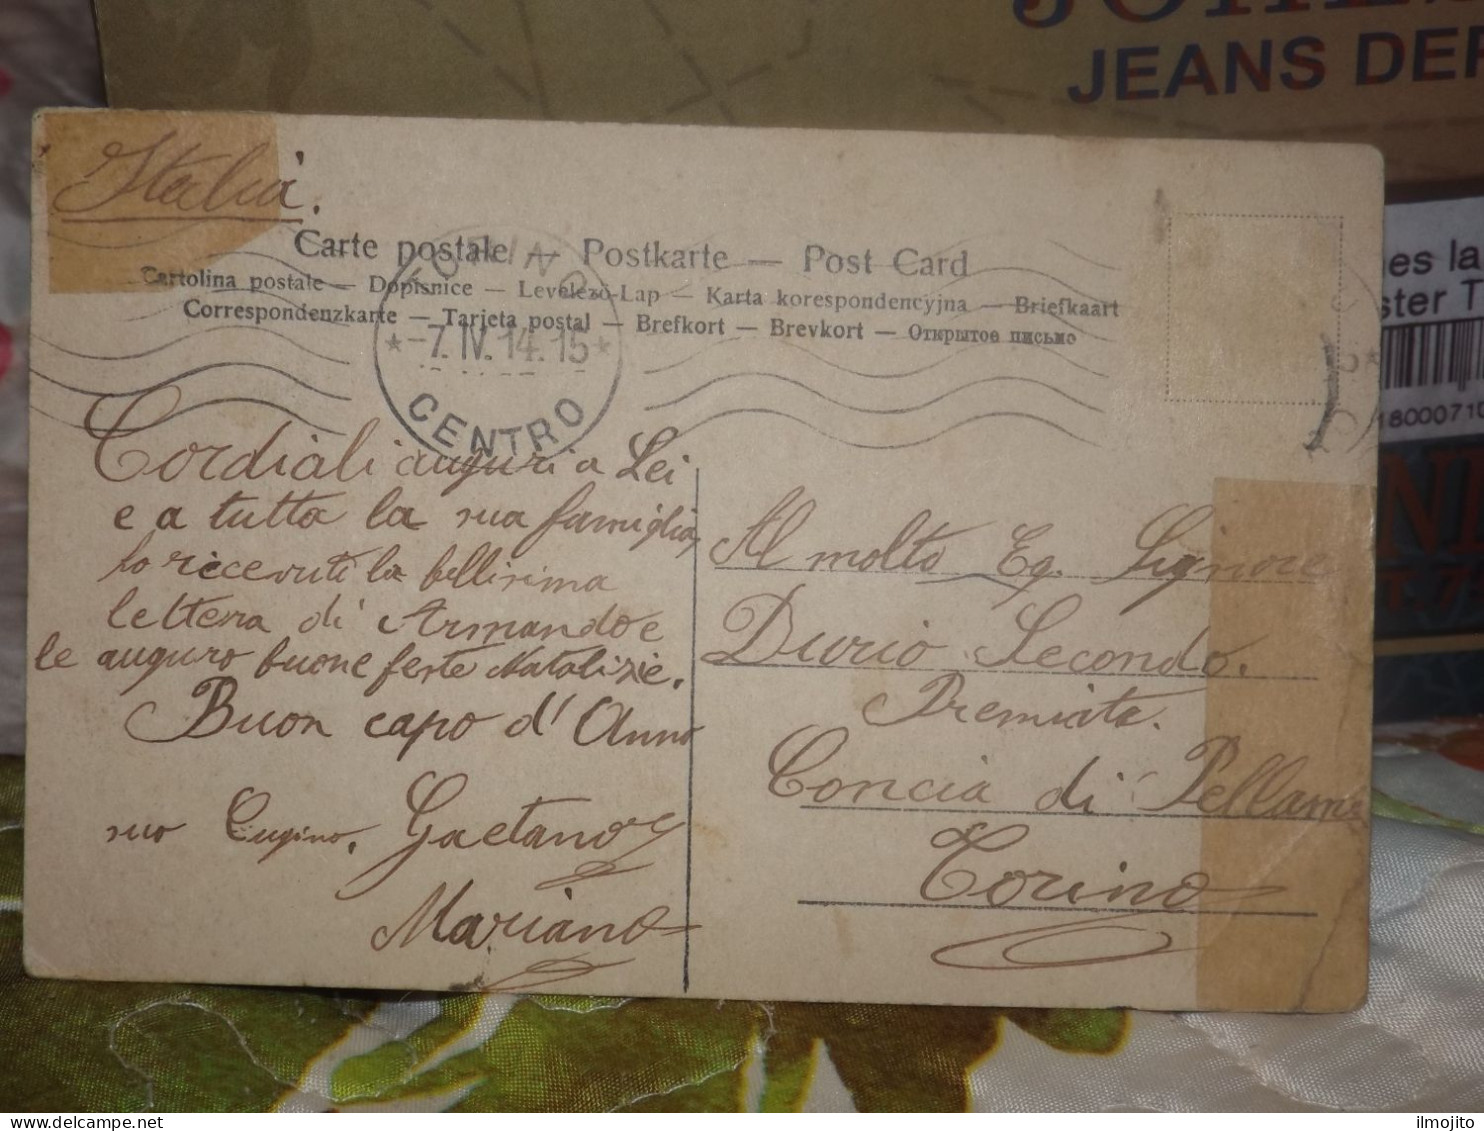 JEANS DEP
Italia.
Carte postale — Postkarte — Post Card
Cartolina postale — Dopisnice — Levelező-Lap — Karta korespondencyjna — Briefkaart
Correspondenzkarte — Tarjeta postal — Brefkort — Brevkort — Открытое письмо
TORINO
-7.IV.14.15
CENTRO
Cordiali auguri a Lei
e a tutta la sua famiglia,
ricevuti la bellisima
lettera di Armando e
le auguro buone feste Natalizie.
Buon capo d'Anno
suo Cugino. Gaetano
Mariano
Al molto Eg. Signore
Durio Secondo.
Premiata.
Concia di Pellame
Torino
es la
ster T
18000710
ilmojito